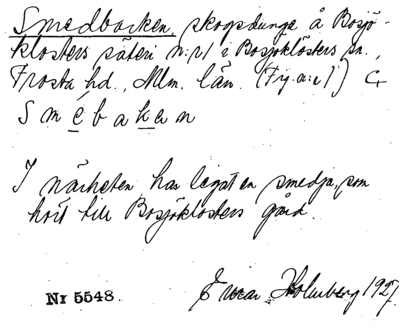 Smedbacken skogsdunge å Bosjö-
klosters säteri n:r 1 i Bosjöklosters sn.,
Frosta hd., Mlm. län. (Fry a:s 1) C
S m e b a k e n
I närheten har legat en smedja, som
hört till Bosjöklosters gård.
Nr 5548. Einar Holmberg 1927.